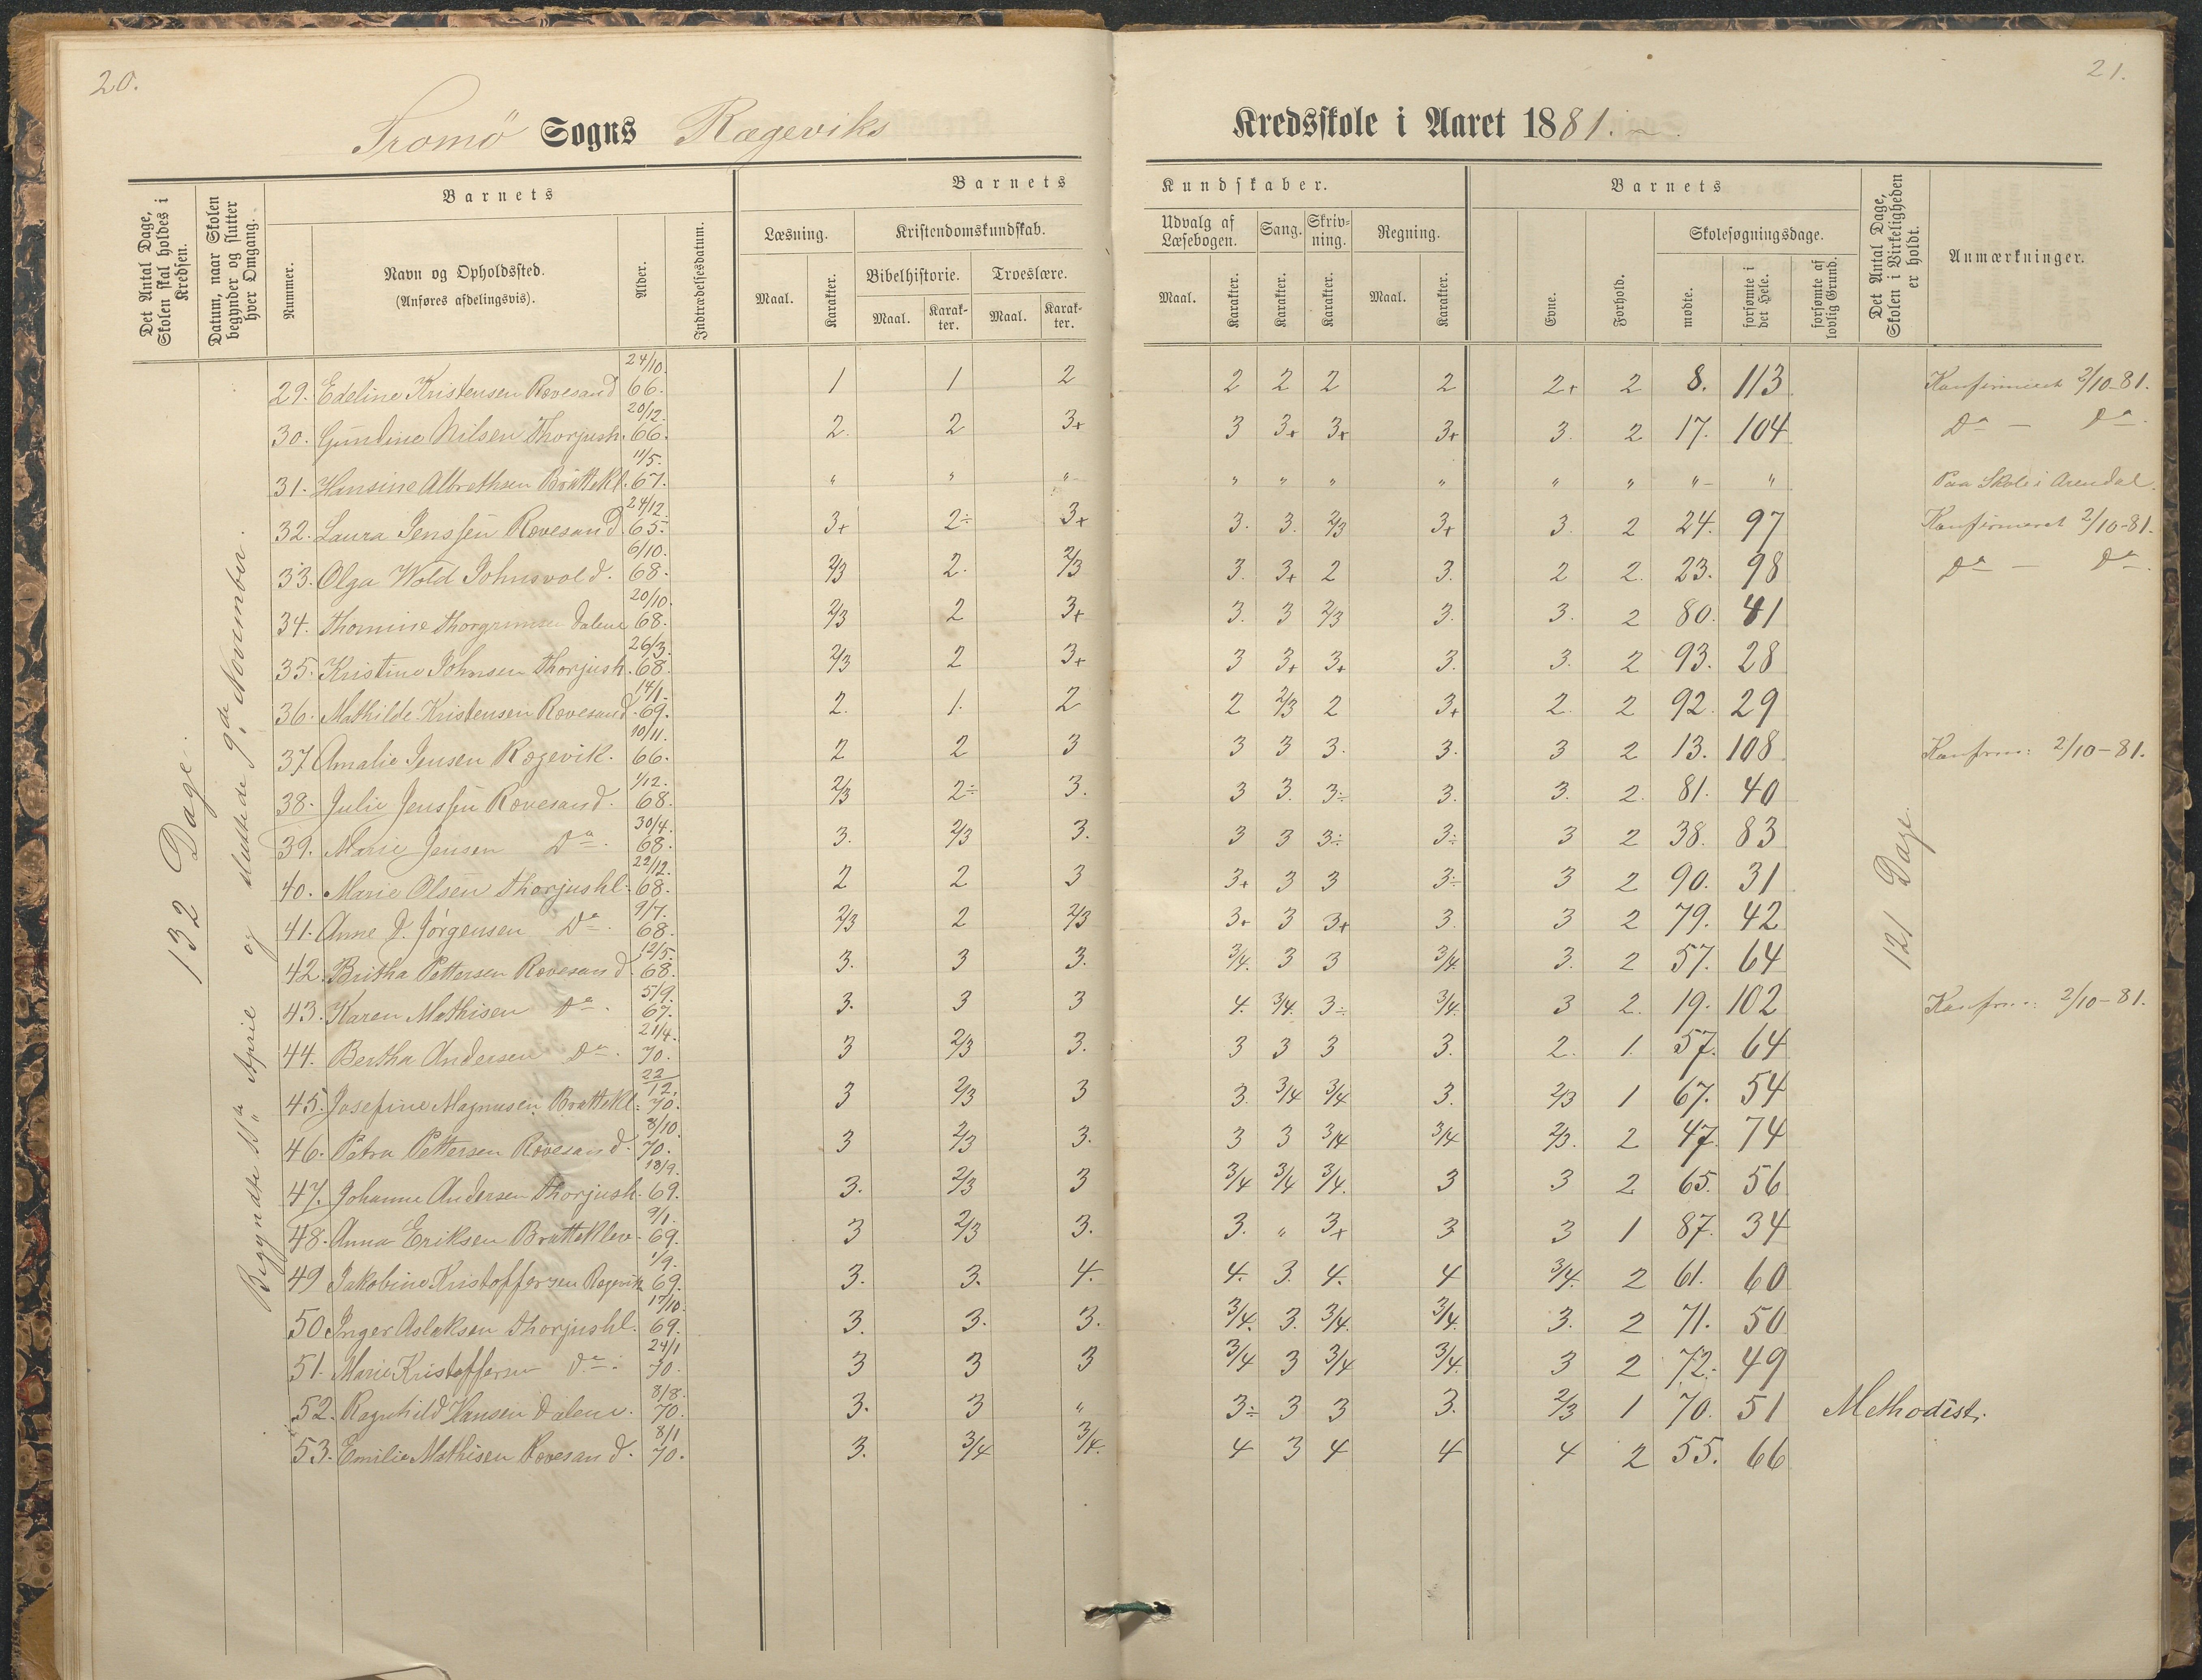 20.
21.
Tromö Sogns Rægeviks Kredsskole i Aaret 1881.
Det Antal Dage, Skolen skal holdes i Kredsen.
Datum, naar Skolen begynder og slutter hver Omgang.
Barnets
Nummer.
Navn og Opholdssted.
(Anføres afdelingsvis).
Alder.
Indtrædelsesdatum.
Barnets Kundskaber.
Læsning.
Maal. Karakter.
Kristendomskundskab.
Bibelhistorie. Troeslære.
Maal. Karakter. Maal. Karakter.
Udvalg af Læsebogen. Sang. Skrivning. Regning.
Maal. Karakter. Karakter. Karakter. Maal. Karakter.
Barnets
Evne. Forhold.
Skolesøgningsdage.
mødte. forsømte i det Hele. forsømte af lovlig Grund.
Det Antal Dage, Skolen i Virkeligheden er holdt.
Anmærkninger.
132 Dage.
Begyndte 11te April og sluttede 9de November.
121 Dage.
29. Edeline Kristensen Rovesand 24/10. 66. 1 1 2 2 2 2 2 2+ 2 8. 113 Konfirmeret 2/10-81.
30. Gundine Nilsen Thorjush. 20/12. 66. 2. 2 3+ 3 3+ 3+ 3+ 3. 2 17. 104 Do — Do.
31. Hansine Albrethsen Brattekl. 11/5. 67. " " " " " " " " " " " Paa Skole i Arendal.
32. Laura Jenssen Rovesand. 24/12. 65. 3+ 2÷ 3+ 3. 3. 2/3 3+ 3. 2 24. 97 Konfirmeret 2/10-81.
33. Olga Wold Johnsvold. 6/10. 68. 2/3 2. 2/3 3. 3+ 2 3. 2 2. 23. 98 Do — Do.
34. Thomine Thorgrimsen Dalene 20/10. 68. 2/3 2 3+ 3. 3 2/3 3. 3. 2 80. 41
35. Kristine Johnsen Thorjush. 26/3. 68. 2/3 2 3+ 3 3+ 3+ 3. 3. 2 93. 28
36. Mathilde Kristensen Rovesand. 14/1. 69. 2. 1. 2 2 2/3 2 3+ 2. 2 92. 29
37. Amalie Jensen Rægevik. 10/11. 66. 2 2 3 3 3 3. 3. 3 2 13. 108 Konfrm: 2/10-81.
38. Julie Jenssen Rovesand. 1/12. 68. 2/3 2÷ 3. 3 3. 3÷ 3. 3. 2. 81. 40
39. Marie Jensen Do. 30/4. 68. 3. 2/3 3. 3 3 3÷ 3÷ 3 2 38. 83
40. Marie Olsen Thorjushl. 22/12. 68. 2 2 3 3+ 3 3 3÷ 3 2 90. 31
41. Anne J. Jørgensen Do. 9/7. 68. 2/3 2 2/3 3+ 3 3+ 3 3 2 79. 42
42. Britha Pettersen Rovesand. 12/5. 68. 3. 3 3. 3/4. 3 3 3/4. 3. 2 57. 64
43. Karen Mathisen Do. 5/9. 67. 3. 3 3 4. 3/4. 3÷ 3/4. 3 2. 19. 102 Konfrm: 2/10-81.
44. Bertha Andersen Do. 21/4. 70. 3 2/3 3. 3 3 3 3. 2. 1. 57. 64
45. Josefine Magnusen Brattekl. 22/12. 70. 3 2/3 3 3. 3/4 3/4 3. 2/3 1 67. 54
46. Petra Pettersen Rovesand. 8/10. 70. 3 2/3 3. 3 3 3/4 3/4 2/3. 2 47. 74
47. Johanne Andersen Thorjush. 18/9. 69. 3. 2/3 3 3/4 3/4 3/4. 3 3 2 65. 56
48. Anna Eriksen Bratteklev. 9/1. 69. 3 2/3 3. 3. " 3+ 3 3 1 87. 34
49 Jakobine Kristoffersen Rægevik 1/9. 69. 3. 3. 4. 4. 3. 4. 4 3/4. 2 61. 60
50 Inger Aslaksen Thorjushl. 17/10. 69. 3. 3. 3. 3/4. 3. 3/4. 3/4. 3. 2 71. 50
51. Marie Kristoffersen Do. 24/1 70. 3 3 3 3/4 3 3/4 3/4. 3 2 72. 49
52. Ragnhild Hansen Dalene. 8/8. 70. 3. 3 " 3÷ 3 3 3. 2/3 1 70. 51 Methodist.
53. Emilie Mathisen Rovesand. 8/1 70. 3. 3/4 3/4. 4 3 4 4 4 2 55. 66